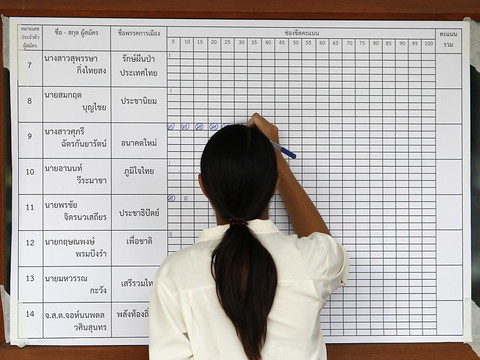 หมายเลข
ประจำตัว
ผู้สมัคร
ชื่อ - สกุล ผู้สมัคร
ชื่อพรรคการเมือง
ช่องขีดคะแนน
คะแนน
รวม
5 10 15 20 25 30 35 40 45 50 55 60 65 70 75 80 85 90 95 100
7 นางสาวสุพรรษา รักษ์ผืนป่า
กิ่งไทยสง ประเทศไทย
8 นายสมกฤต ประชานิยม
บุญไชย
9 นางสาวศุภรี อนาคตใหม่
ฉัตรกันยารัตน์
10 นายอานนท์ ภูมิใจไทย
วีระมาชา
11 นายพรชัย ประชาธิปัตย์
จิตรนวเสถียร
12 นายกฤษณพงษ์ เพื่อชาติ
พรมบึงรำ
13 นายมหวรรณ เสรีรวมไท
กะวัง
14 จ.ส.ต.จอห์นนพดล พลังท้องถิ่
วศินสุนทร